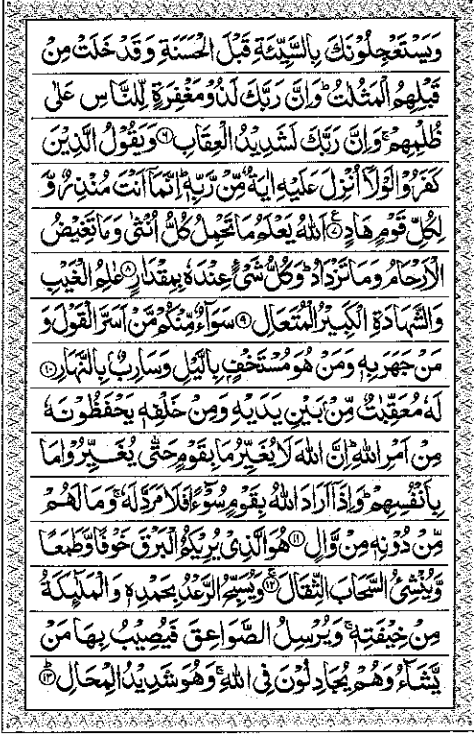 وَيَسْتَعْجِلُوْنَكَ بِالسَّيِّئَةِ قَبْلَ الْحَسَنَةِ وَقَدْ خَلَتْ مِنْ
قَبْلِهِمُ الْمَثُلٰتُ ؕ وَاِنَّ رَبَّكَ لَذُوْ مَغْفِرَةٍ لِّلنَّاسِ عَلٰى
ظُلْمِهِمْ ۚ وَاِنَّ رَبَّكَ لَشَدِيْدُ الْعِقَابِ ﴿۶﴾ وَيَقُوْلُ الَّذِيْنَ
كَفَرُوْا لَوْلَاۤ اُنْزِلَ عَلَيْهِ اٰيَةٌ مِّنْ رَّبِّهٖ ؕ اِنَّمَاۤ اَنْتَ مُنْذِرٌ وَّ
لِكُلِّ قَوْمٍ هَادٍ ﴿۷﴾ اَللّٰهُ يَعْلَمُ مَا تَحْمِلُ كُلُّ اُنْثٰى وَمَا تَغِيْضُ
الْاَرْحَامُ وَمَا تَزْدَادُ ؕ وَكُلُّ شَىْءٍ عِنْدَهٗ بِمِقْدَارٍ ﴿۸﴾ عٰلِمُ الْغَيْبِ
وَالشَّهَادَةِ الْكَبِيْرُ الْمُتَعَالِ ﴿۹﴾ سَوَآءٌ مِّنْكُمْ مَّنْ اَسَرَّ الْقَوْلَ وَ
مَنْ جَهَرَ بِهٖ وَمَنْ هُوَ مُسْتَخْفٍ بِالَّيْلِ وَسَارِبٌۢ بِالنَّهَارِ ﴿۱۰﴾
لَهٗ مُعَقِّبٰتٌ مِّنْۢ بَيْنِ يَدَيْهِ وَمِنْ خَلْفِهٖ يَحْفَظُوْنَهٗ
مِنْ اَمْرِ اللّٰهِ ؕ اِنَّ اللّٰهَ لَا يُغَيِّرُ مَا بِقَوْمٍ حَتّٰى يُغَيِّرُوْا مَا
بِاَنْفُسِهِمْ ؕ وَاِذَاۤ اَرَادَ اللّٰهُ بِقَوْمٍ سُوْٓءًا فَلَا مَرَدَّ لَهٗ ۚ وَمَا لَهُمْ
مِّنْ دُوْنِهٖ مِنْ وَّالٍ ﴿۱۱﴾ هُوَ الَّذِىْ يُرِيْكُمُ الْبَرْقَ خَوْفًا وَّطَمَعًا
وَّيُنْشِئُ السَّحَابَ الثِّقَالَ ﴿۱۲﴾ وَيُسَبِّحُ الرَّعْدُ بِحَمْدِهٖ وَالْمَلٰٓئِكَةُ
مِنْ خِيْفَتِهٖ ۚ وَيُرْسِلُ الصَّوَاعِقَ فَيُصِيْبُ بِهَا مَنْ
يَّشَآءُ وَهُمْ يُجَادِلُوْنَ فِى اللّٰهِ ۚ وَهُوَ شَدِيْدُ الْمِحَالِ ﴿۱۳﴾